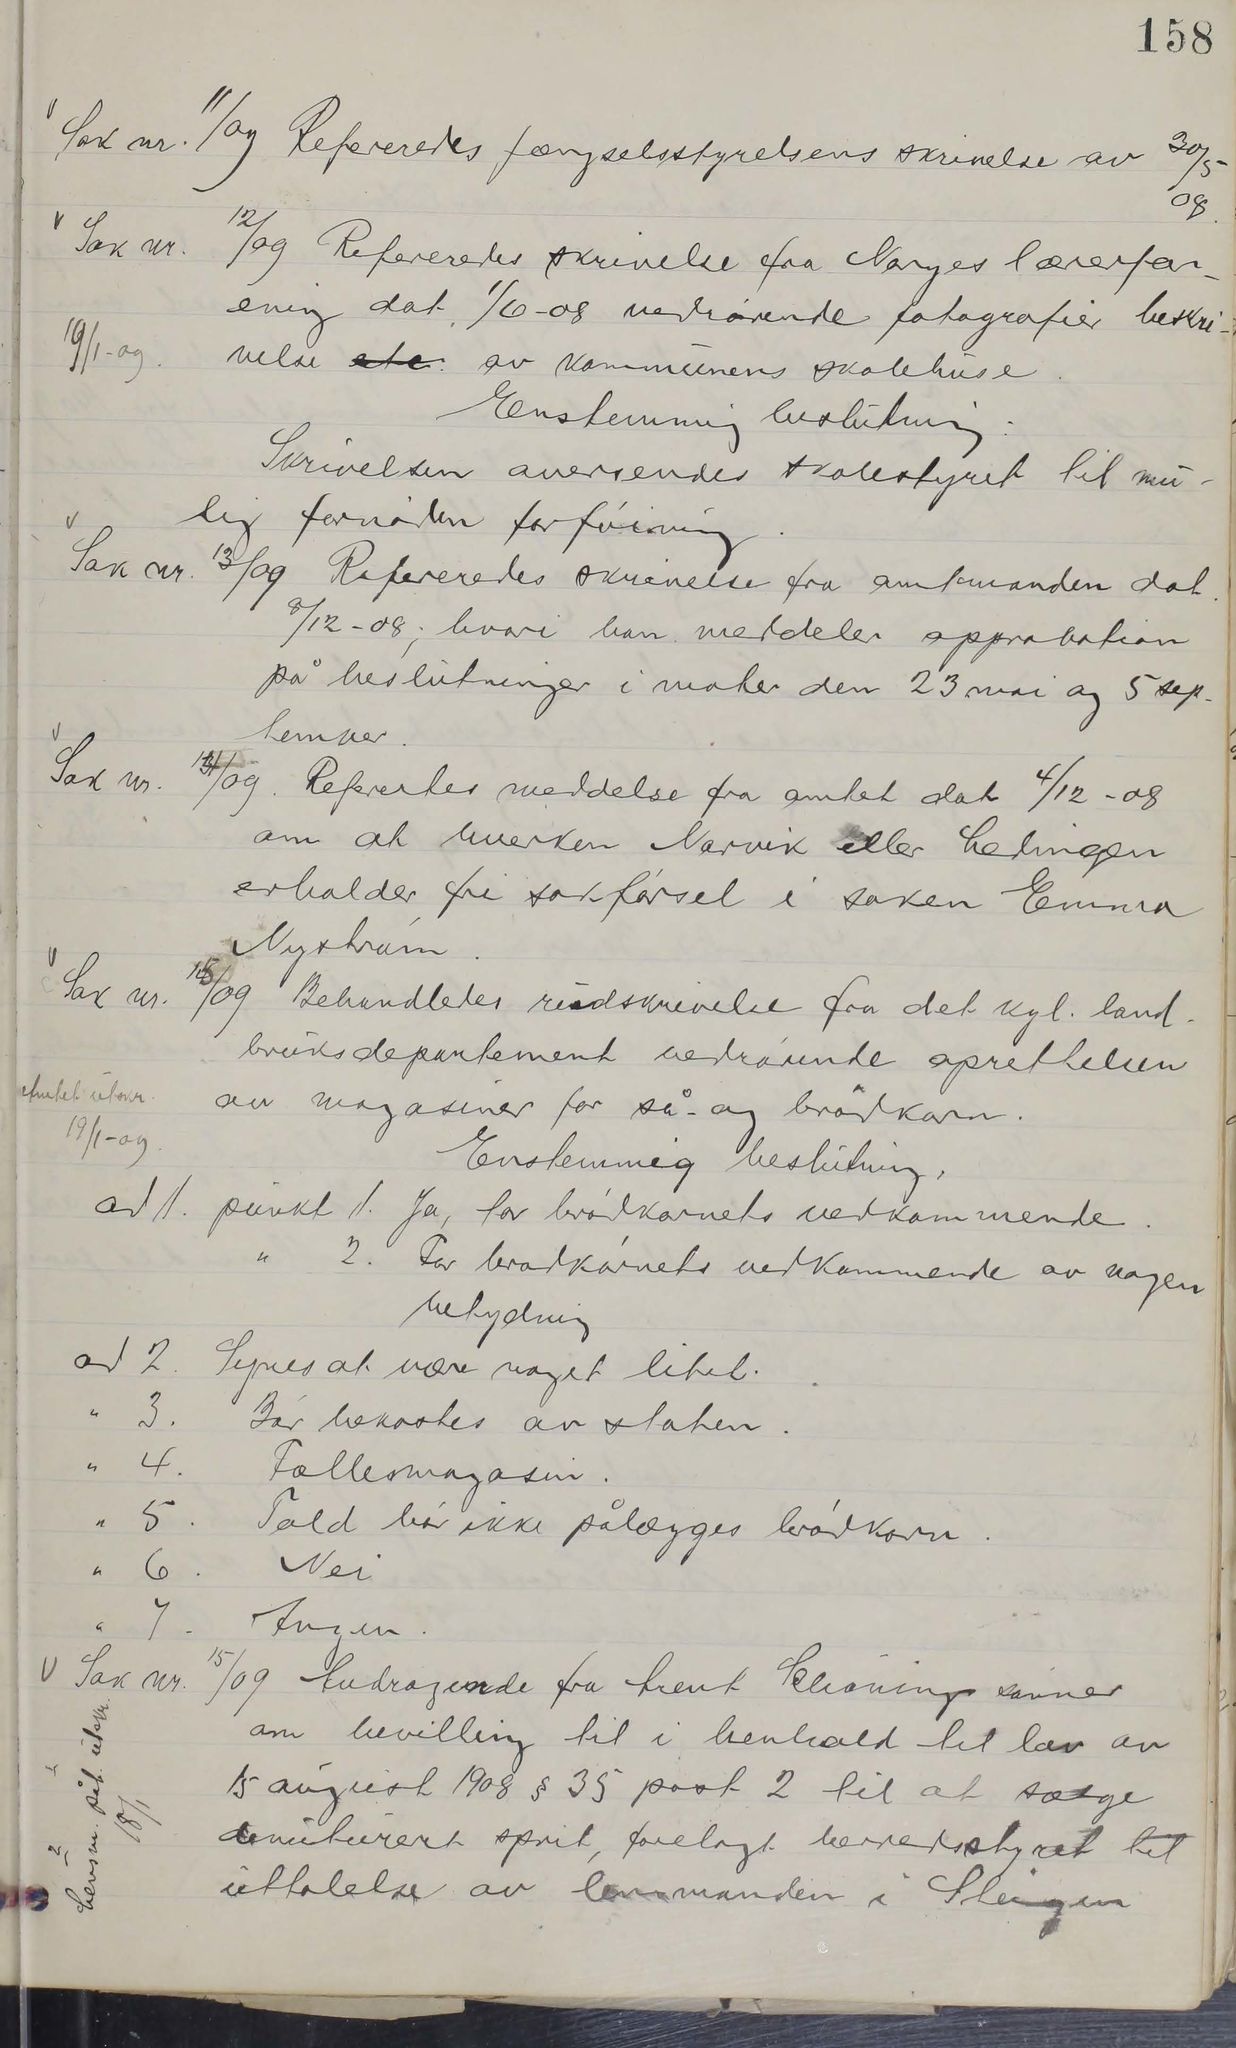 158
Sak nr. 11/09 Refereredes fængselsstyrelsens skrivelse av 30/5-
08.
Sak nr. 12/09 Refereredes skrivelse fra Norges lærerfor-
ening dat. 1/6-08 vedrørende fotografier beskri-
19/1-09. velse etc. av kommunens skolehuse.
Enstemmig beslutning:
Skrivelsen oversendes skolestyret til mu-
lig fornøden forføining.
Sak nr. 13/09 Refereredes skrivelse fra amtmanden dat.
8/12-08; hvori han meddeler approbation
på beslutninger i møter den 23 mai og 5 sep-
tember.
Sak nr. 14/09. Refereres meddelse fra amtet dat 4/12-08
om at hverken Narvik eller Lødingen
erholder fri sakførsel i saken Emma
Nystrøm.
Sak nr. 15/09 Behandledes rundskrivelse fra det kgl. land-
bruksdepartement vedrørende oprettelsen
Amtet utskr. av magasiner for så- og brødkorn.
19/1-09.
Enstemmig beslutning.
ad 1. punkt 1. Ja, for brødkornets vedkommende.
" 2. For brødkornets vedkommende av nogen
betydning
ad 2. Synes at være noget litet.
" 3. Bør bekostes av staten.
" 4. Fællesmagasin.
" 5. Told bør ikke pålægges brødkorn.
" 6. Nei
" 7. Ingen.
Sak nr. 15/09 Andragende fra Arent Schøning sønner
om bevilling til i henhold til lov av
15 august 1908 § 35 post 2 til at sælge
denaturert sprit, forelagt herredsstyret til
uttalelse av lensmanden i Steigen
Lensm. påt. utskr.
18/1